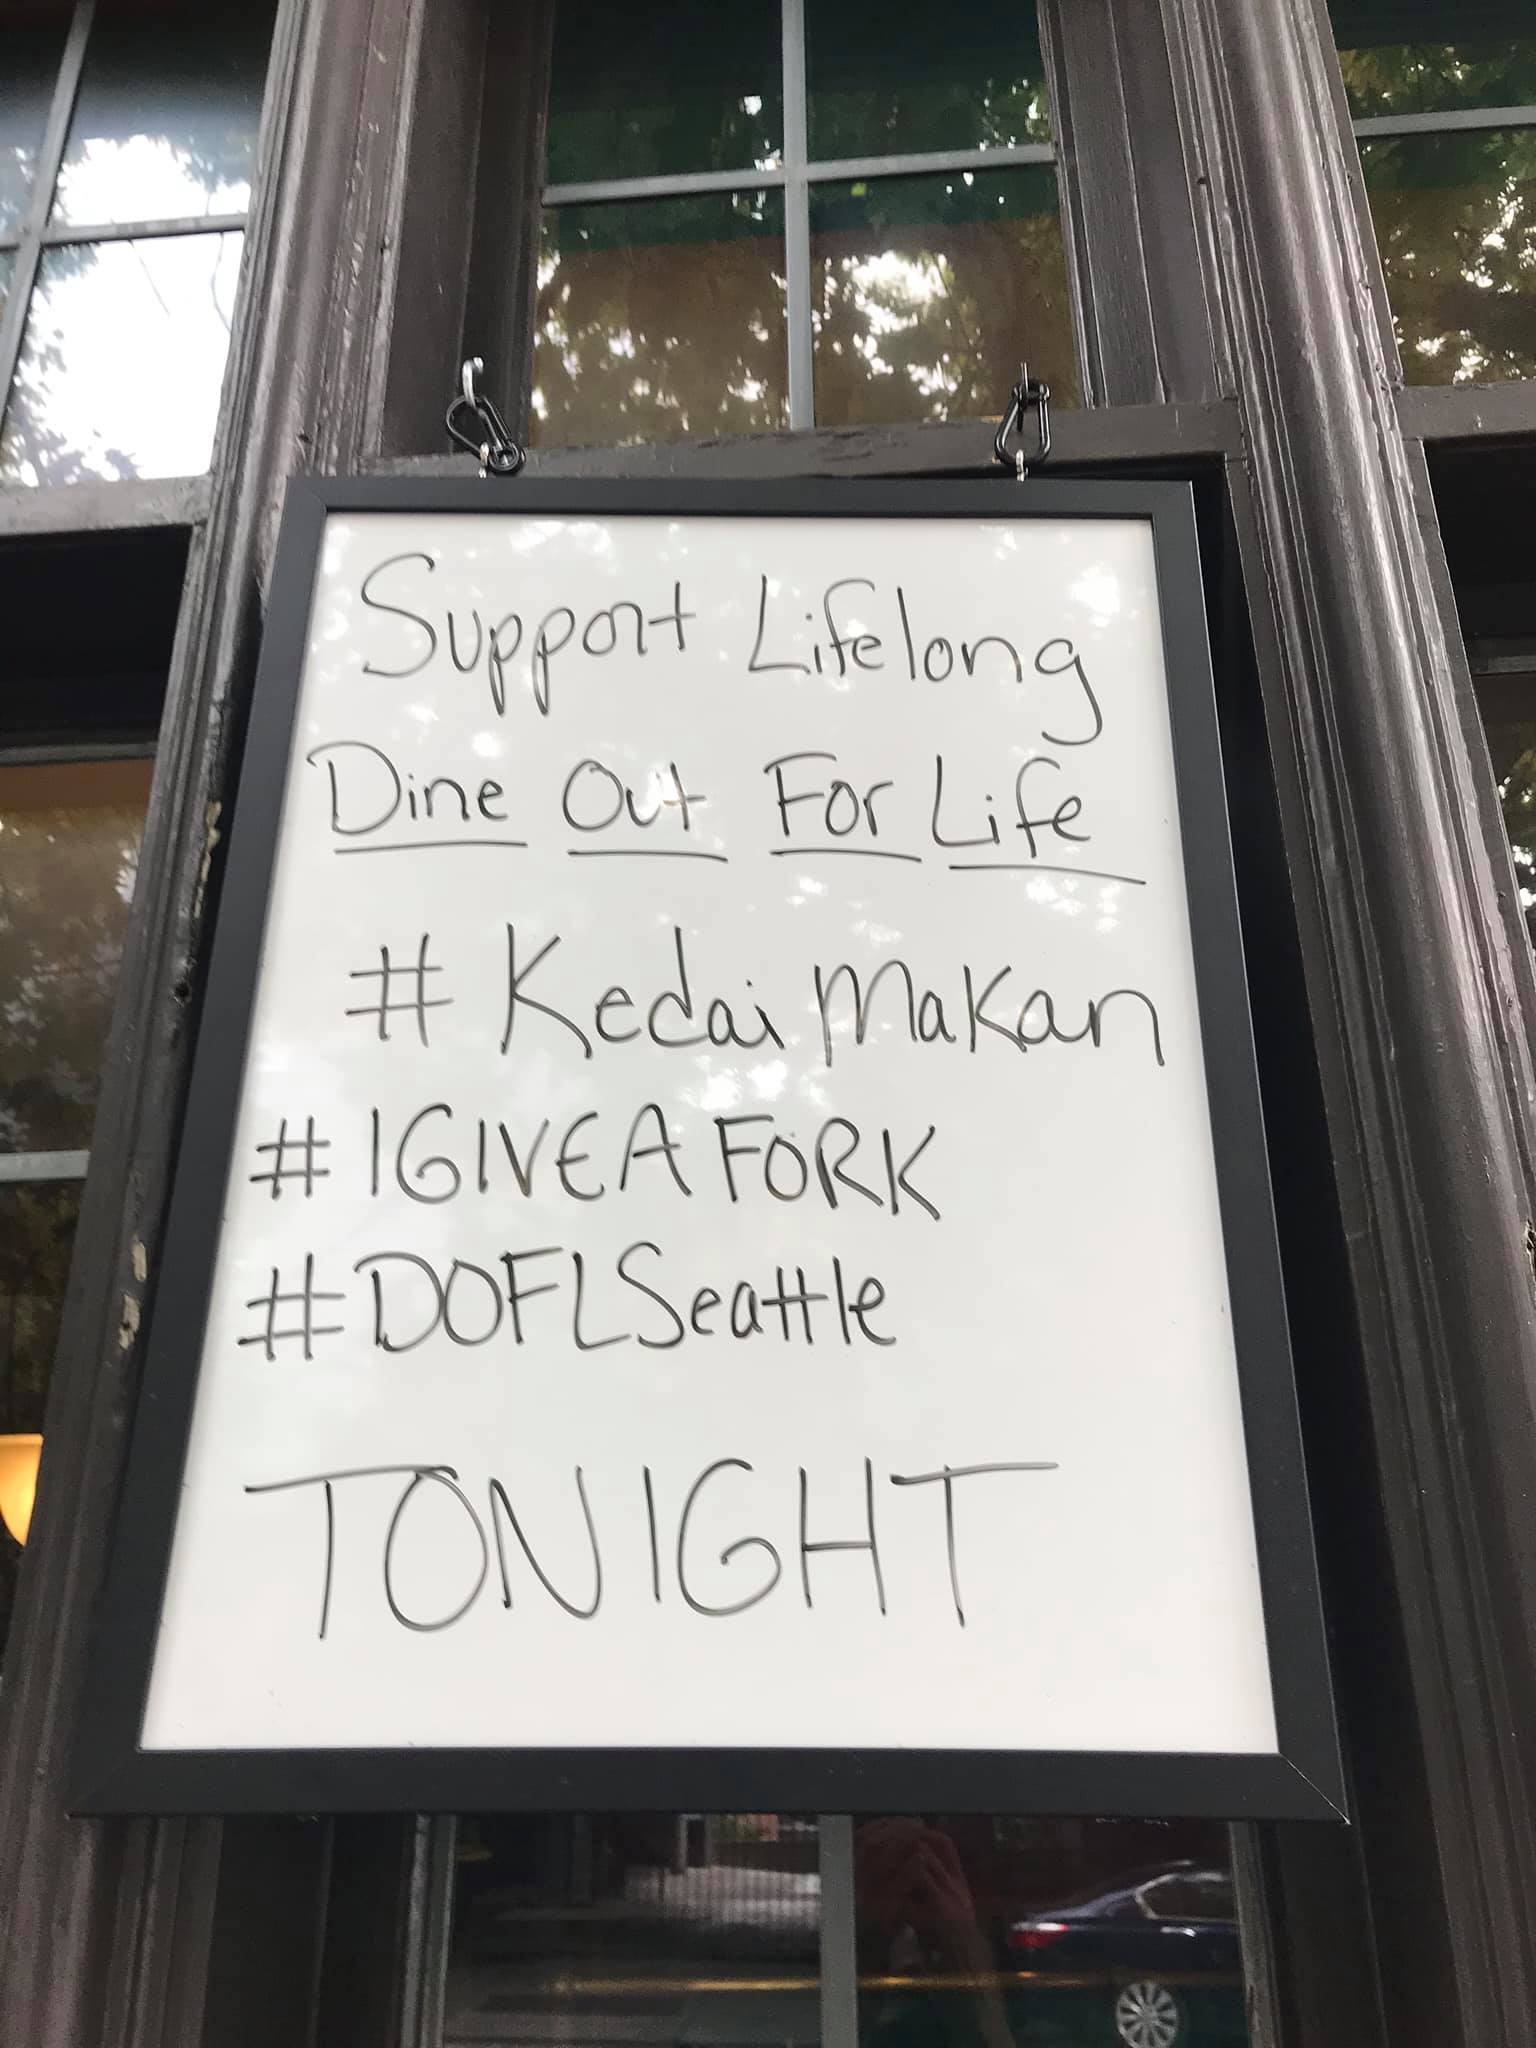 Support Lifelong
Dine Out For Life
# Kedai Makan
# IGIVEA FORK
# DOFLSeattle
TONIGHT